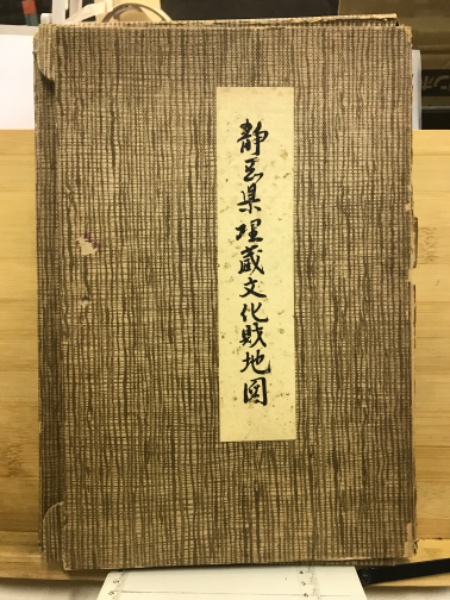 静岡県埋蔵文化財地図